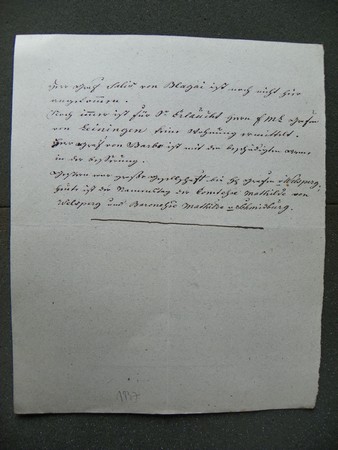 Herr Graf Felix von Blagai ist noch nicht hier
angekommen.
Noch immer ist für Sr Erlaucht Herrn FML Grafen
von Leiningen keine Wohnung ermittelt.
Herr Graf von Barbo ist mit der beschädigten Arme
in der Besserung.
Gestern war große Gesellschaft bei H Grafen v Welsperg.
heute ist der Namenstag der Comtesse Mathilde von
Welsperg und Baronesse Mathilde v Schmidburg.
1137